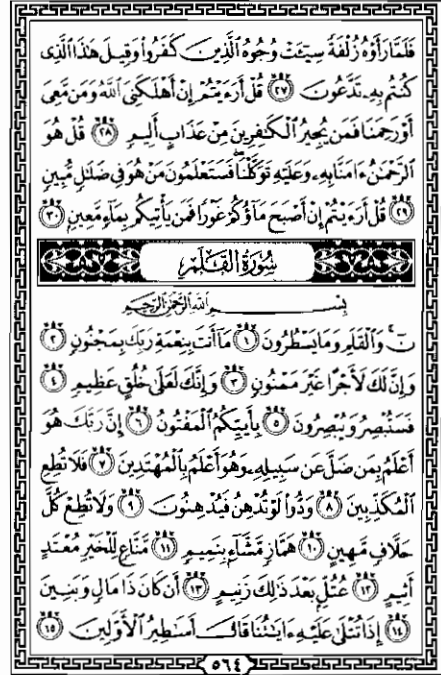 فَلَمَّا رَأَوْهُ زُلْفَةً سِيٓـَٔتْ وُجُوهُ ٱلَّذِينَ كَفَرُوا۟ وَقِيلَ هَٰذَا ٱلَّذِى
كُنتُم بِهِۦ تَدَّعُونَ ٢٧ قُلْ أَرَءَيْتُمْ إِنْ أَهْلَكَنِىَ ٱللَّهُ وَمَن مَّعِىَ
أَوْ رَحِمَنَا فَمَن يُجِيرُ ٱلْكَٰفِرِينَ مِنْ عَذَابٍ أَلِيمٍ ٢٨ قُلْ هُوَ
ٱلرَّحْمَٰنُ ءَامَنَّا بِهِۦ وَعَلَيْهِ تَوَكَّلْنَا فَسَتَعْلَمُونَ مَنْ هُوَ فِى ضَلَٰلٍ مُّبِينٍ
٢٩ قُلْ أَرَءَيْتُمْ إِنْ أَصْبَحَ مَآؤُكُمْ غَوْرًا فَمَن يَأْتِيكُم بِمَآءٍ مَّعِينٍۭ ٣٠
سُورَةُ القَلَمِ
بِسْمِ ٱللَّهِ ٱلرَّحْمَٰنِ ٱلرَّحِيمِ
نٓ وَٱلْقَلَمِ وَمَا يَسْطُرُونَ ١ مَآ أَنتَ بِنِعْمَةِ رَبِّكَ بِمَجْنُونٍ ٢
وَإِنَّ لَكَ لَأَجْرًا غَيْرَ مَمْنُونٍ ٣ وَإِنَّكَ لَعَلَىٰ خُلُقٍ عَظِيمٍ ٤
فَسَتُبْصِرُ وَيُبْصِرُونَ ٥ بِأَييِّكُمُ ٱلْمَفْتُونُ ٦ إِنَّ رَبَّكَ هُوَ
أَعْلَمُ بِمَن ضَلَّ عَن سَبِيلِهِۦ وَهُوَ أَعْلَمُ بِٱلْمُهْتَدِينَ ٧ فَلَا تُطِعِ
ٱلْمُكَذِّبِينَ ٨ وَدُّوا۟ لَوْ تُدْهِنُ فَيُدْهِنُونَ ٩ وَلَا تُطِعْ كُلَّ
حَلَّافٍ مَّهِينٍ ١٠ هَمَّازٍ مَّشَّآءٍۭ بِنَمِيمٍ ١١ مَّنَّاعٍ لِّلْخَيْرِ مُعْتَدٍ
أَثِيمٍ ١٢ عُتُلٍّۭ بَعْدَ ذَٰلِكَ زَنِيمٍ ١٣ أَن كَانَ ذَا مَالٍ وَبَنِينَ
١٤ إِذَا تُتْلَىٰ عَلَيْهِ ءَايَٰتُنَا قَالَ أَسَٰطِيرُ ٱلْأَوَّلِينَ ١٥
٥٦٤